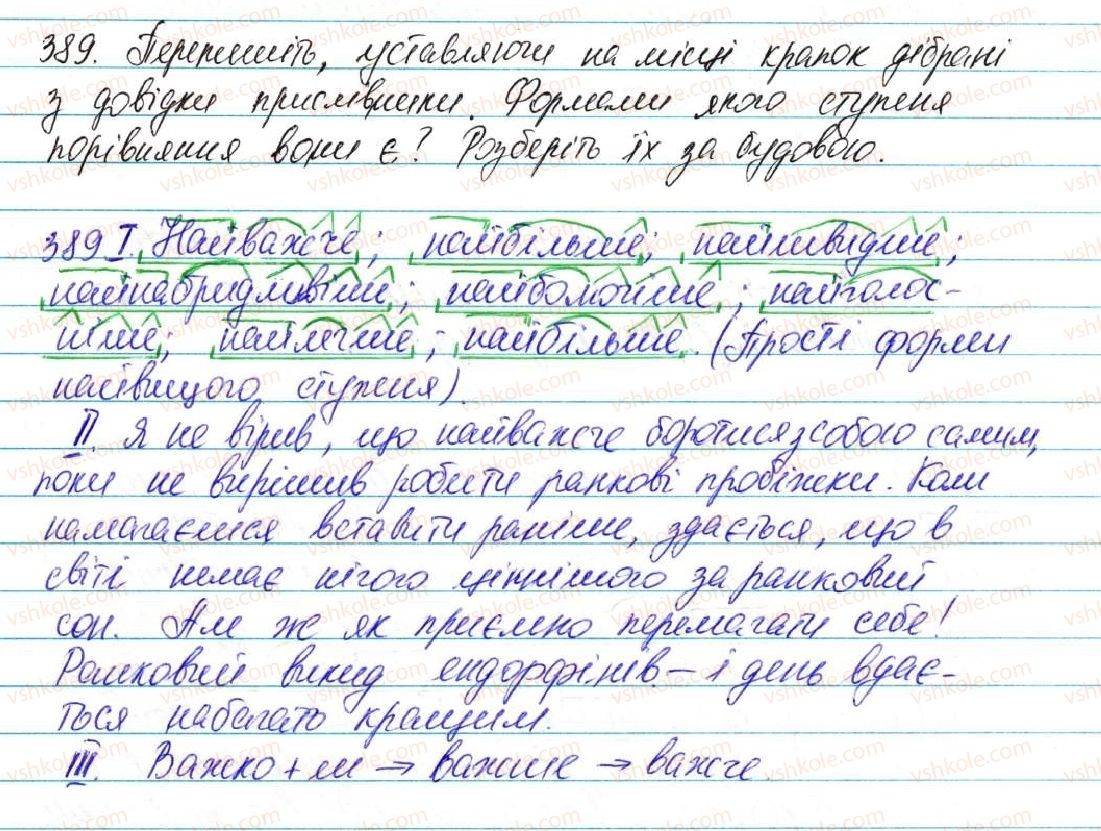 389. Перепишіть, уставляючи на місці крапок дібрані
з довідки прислівники. Формами якого ступеня
порівняння вони є? Розберіть їх за будовою.
389 I. Найважче; найбільше; найшвидше;
найнабридливіше; найболючіше; найголос-
ніше; найлегше; найбільше. (Прості форми
найвищого ступеня).
II. Я не вірив, що найважче боротися з собою самим,
поки не вирішив робити ранкові пробіжки. Коли
намагаєшся вставати раніше, здається, що в
світі немає нічого ціннішого за ранковий
сон. Але ж як приємно перемагати себе!
Ранковий викид ендорфінів – і день вдає-
ться набагато кращим.
III. Важко + ш → важше → важче